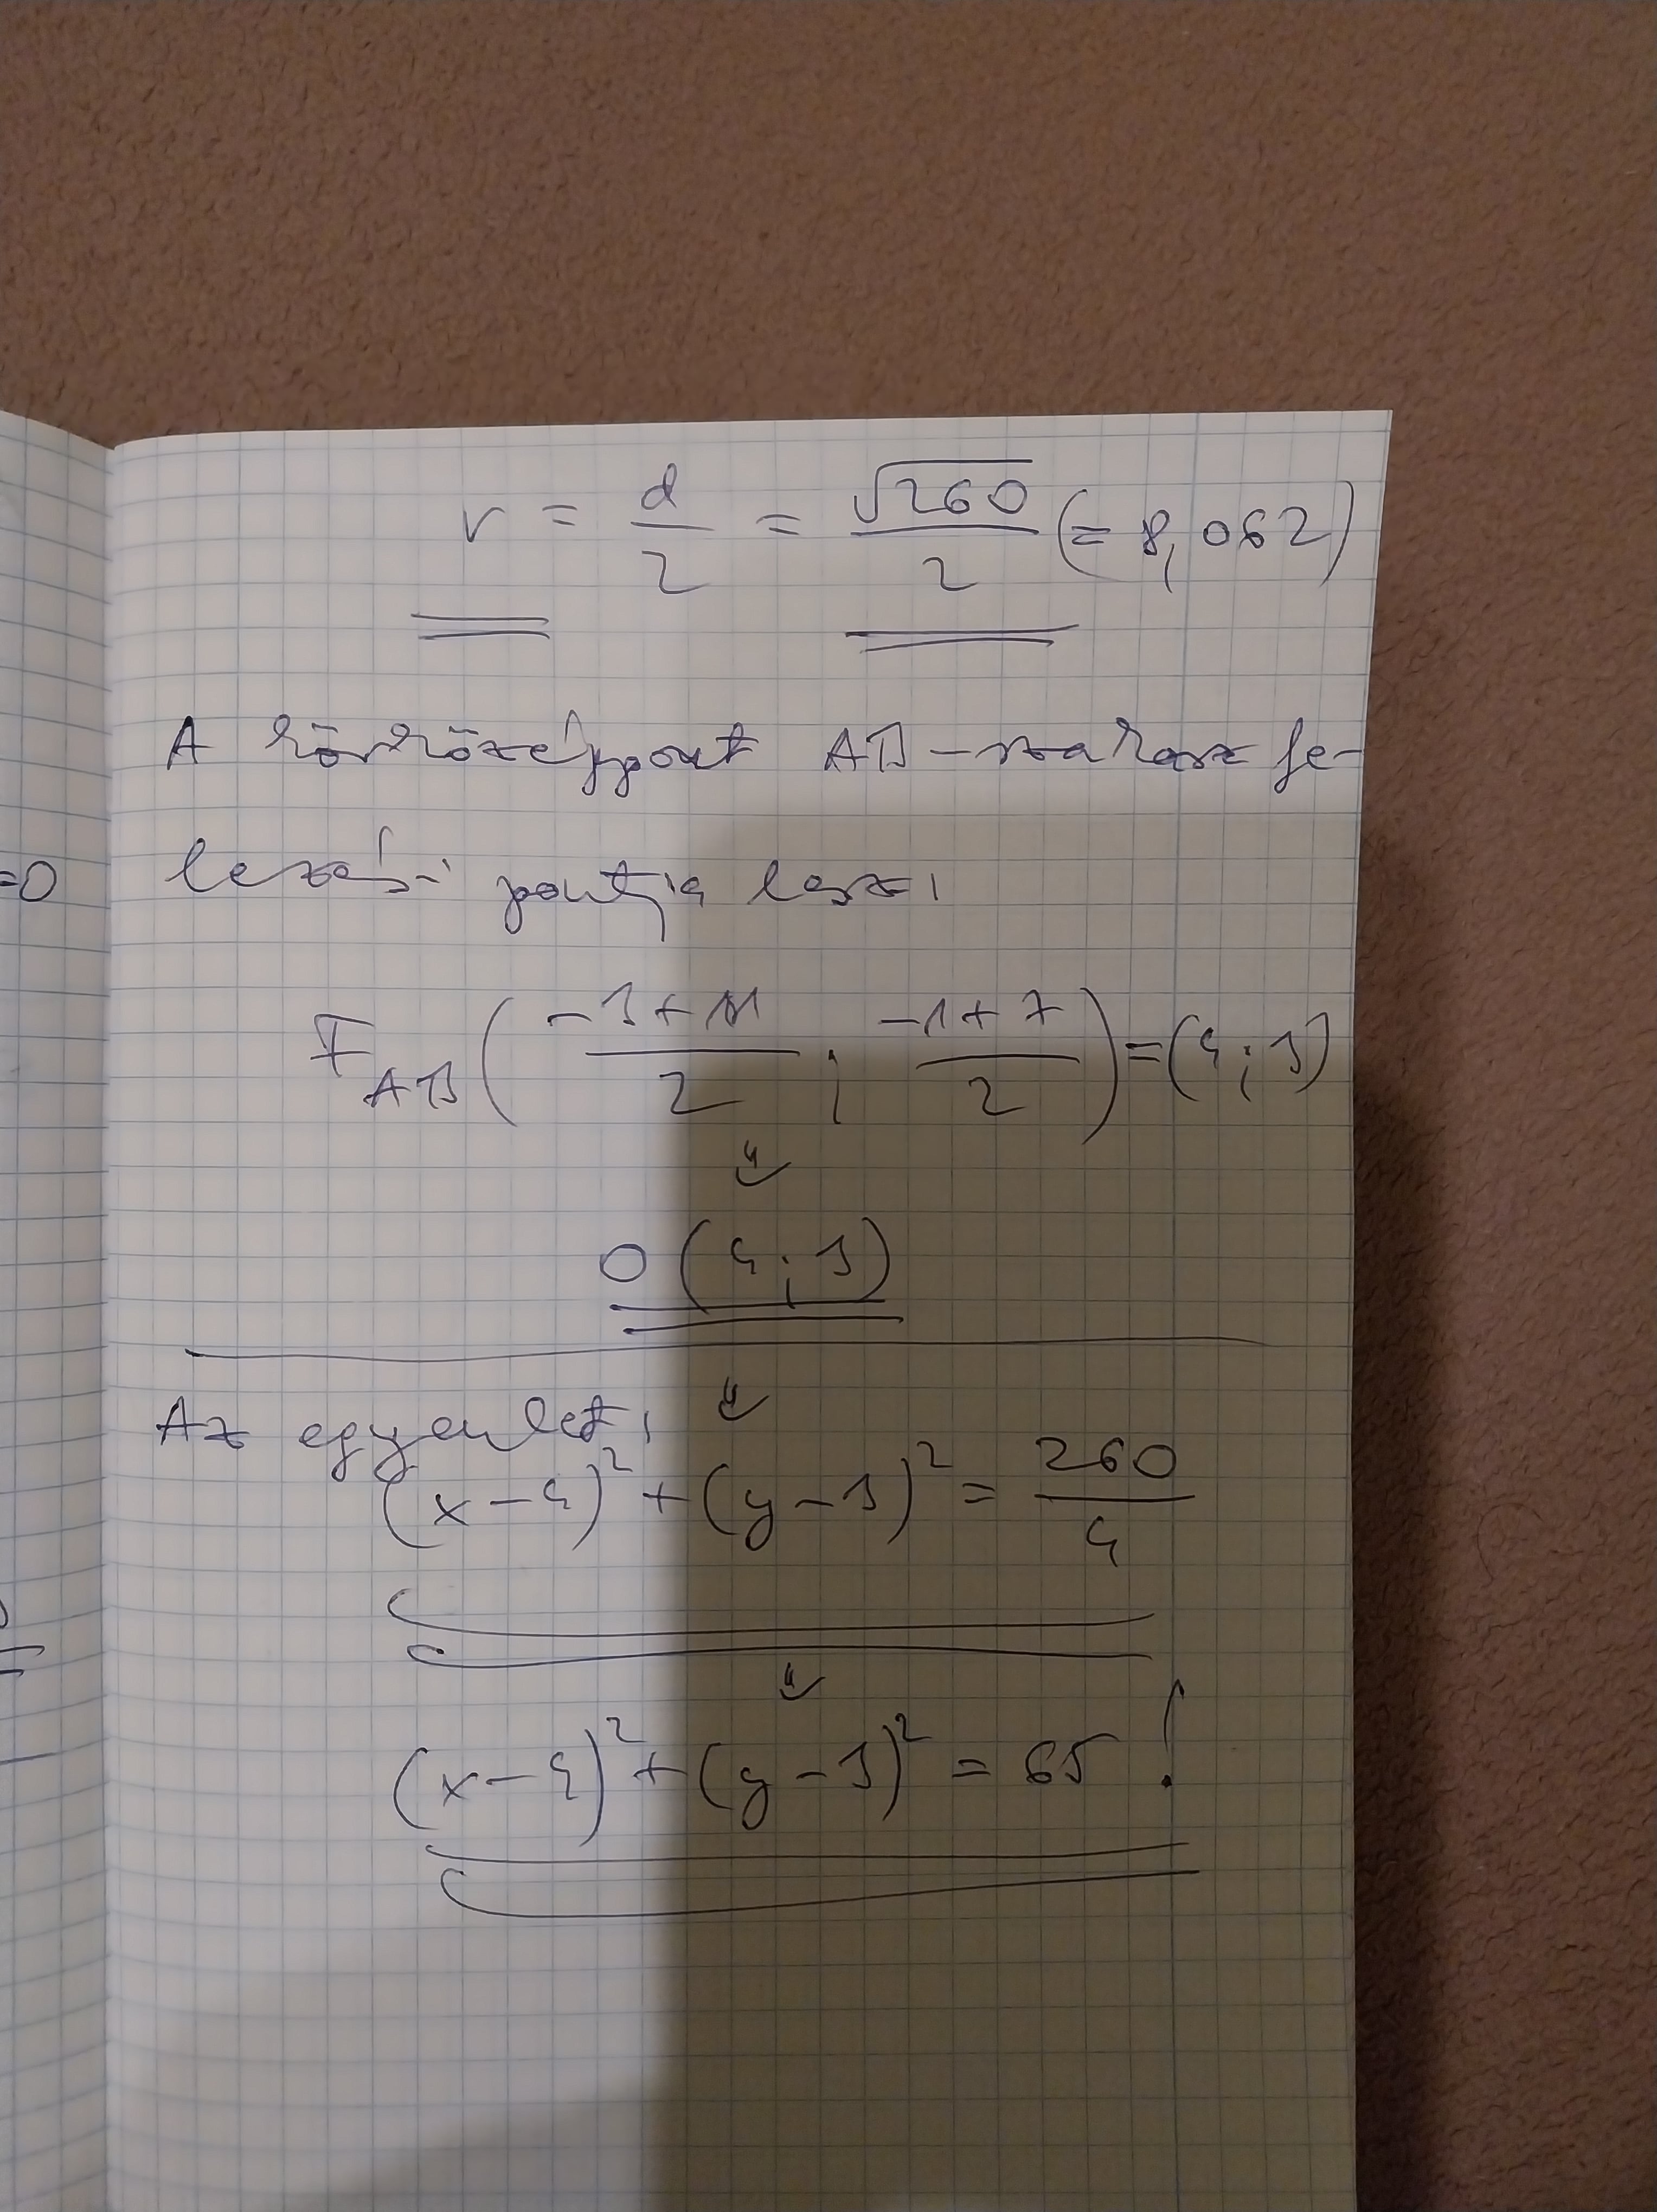 r = d/2 = √260/2 (= 8,062)
A körközéppont AB-szakasz fe-
lezési pontja lesz:
F_AB (-3+11/2 ; -1+7/2) = (4;3)
⇓
O (4;3)
Az egyenlet: ⇓
(x-4)² + (y-3)² = 260/4
⇓
(x-4)² + (y-3)² = 65 !
=0